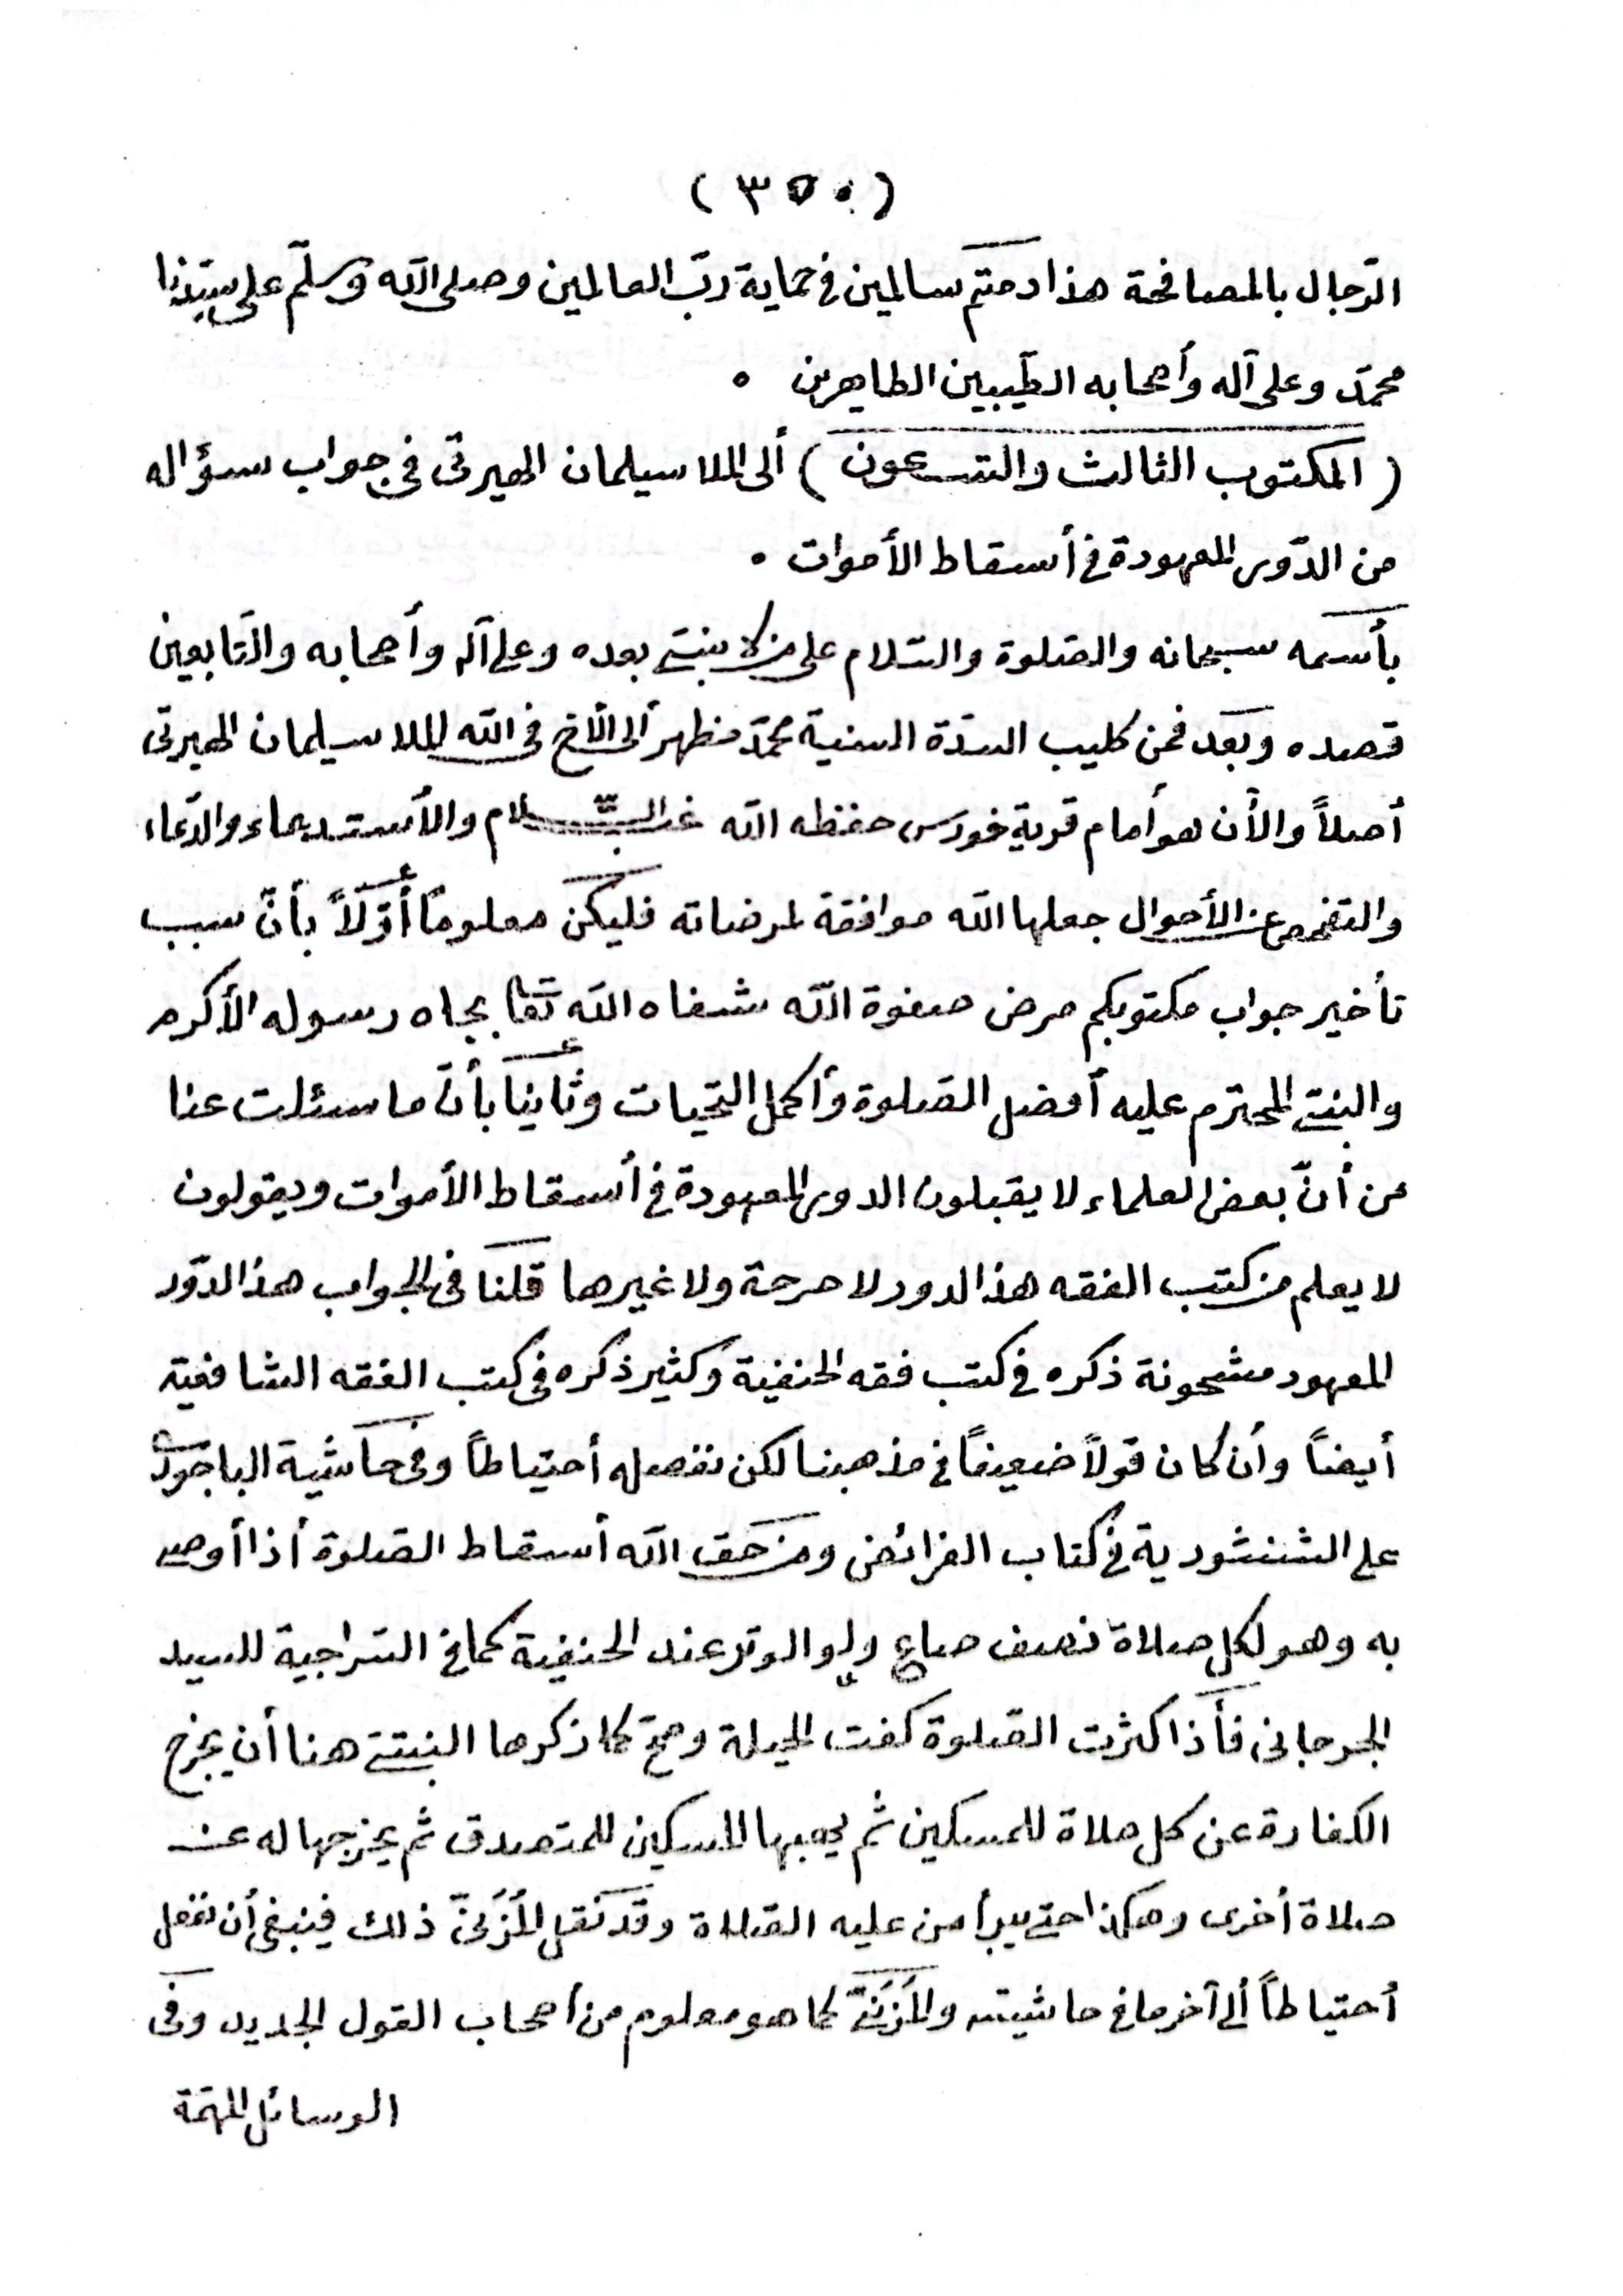 (٣٥٠)
الرّجال بالمصافحة هذا دمتم سالمين فى حماية ربّ العالمين وصلى الله وسلّم على سيّدنا
محمّد وعلى آله وأصحابه الطّيبين الطاهرين ٠
(المكتوب الثالث والتسعون) ألى الملا سيلمان الهيرتى فى جواب سؤاله
من الدّور المعهودة فى أسقاط الأموات ٠
بأسمه سبحانه والصّلوة والسّلام على من لا نبىّ بعده وعلى آله وأصحابه والتّابعين
قصده وبعد فمن كليب السدّة السنية محمّد مظهر ألى الأخ فى الله الملا سيلمان الهيرتى
أصلاً والأن هو أمام قرية خورس حفظه الله غبّ السّلام والأستدعاء والدّعاء
والتفحص عن الأحوال جعلها الله موافقة لمرضاته فليكن معلوماً أوّلاً بأنّ سبب
تأخير جواب مكتوبكم مرض صفوة الله شفاه الله تعا بجاه رسوله الأكرم
والنبىّ المحترم عليه أفضل الصّلوة وأكمل التحيات وثانياً بأنّ ما سئلت عنا
من أنّ بعض العلماء لا يقبلون الدور المعهودة فى أسقاط الأموات ويقولون
لا يعلم من كتب الفقه هذا الدور لا صرحة ولا غيرها قلنا فى الجواب هذا الدّور
المعهود مشحونة ذكره فى كتب فقه الحنفية وكثير ذكره فى كتب الفقه الشافعية
أيضاً وأن كان قولاً ضعيفاً فى مذهبنا لكن نفصله أحتياطاً وفى حاشية الباجورى
على الشنشورية فى كتاب الفرائض ومن حق الله أسقاط الصّلوة أذا أوصى
به وهو لكل صلاة نصف صاع ولو الوتر عند الحنفية كما فى السّراجية للسيد
الجرجانى فأذا كثرت الصّلوة كفت الحيلة وهى كما ذكرها النبتيتى هنا أن يخرج
الكفارة عن كل صلاة للمسكين ثم يهبها المسكين للمتصدق ثم يخرجها له عن
صلاة أخرى وهكذا حتى يبرأ من عليه الصّلاة وقد نقل المُزَنىّ ذلك فينبغى أن نفعل
أحتياطاً ألى آخر ما فى حاشيته والمُزَنىّ كما هو معلوم من أصحاب القول الجديد وفى
الوسائل المهمّة